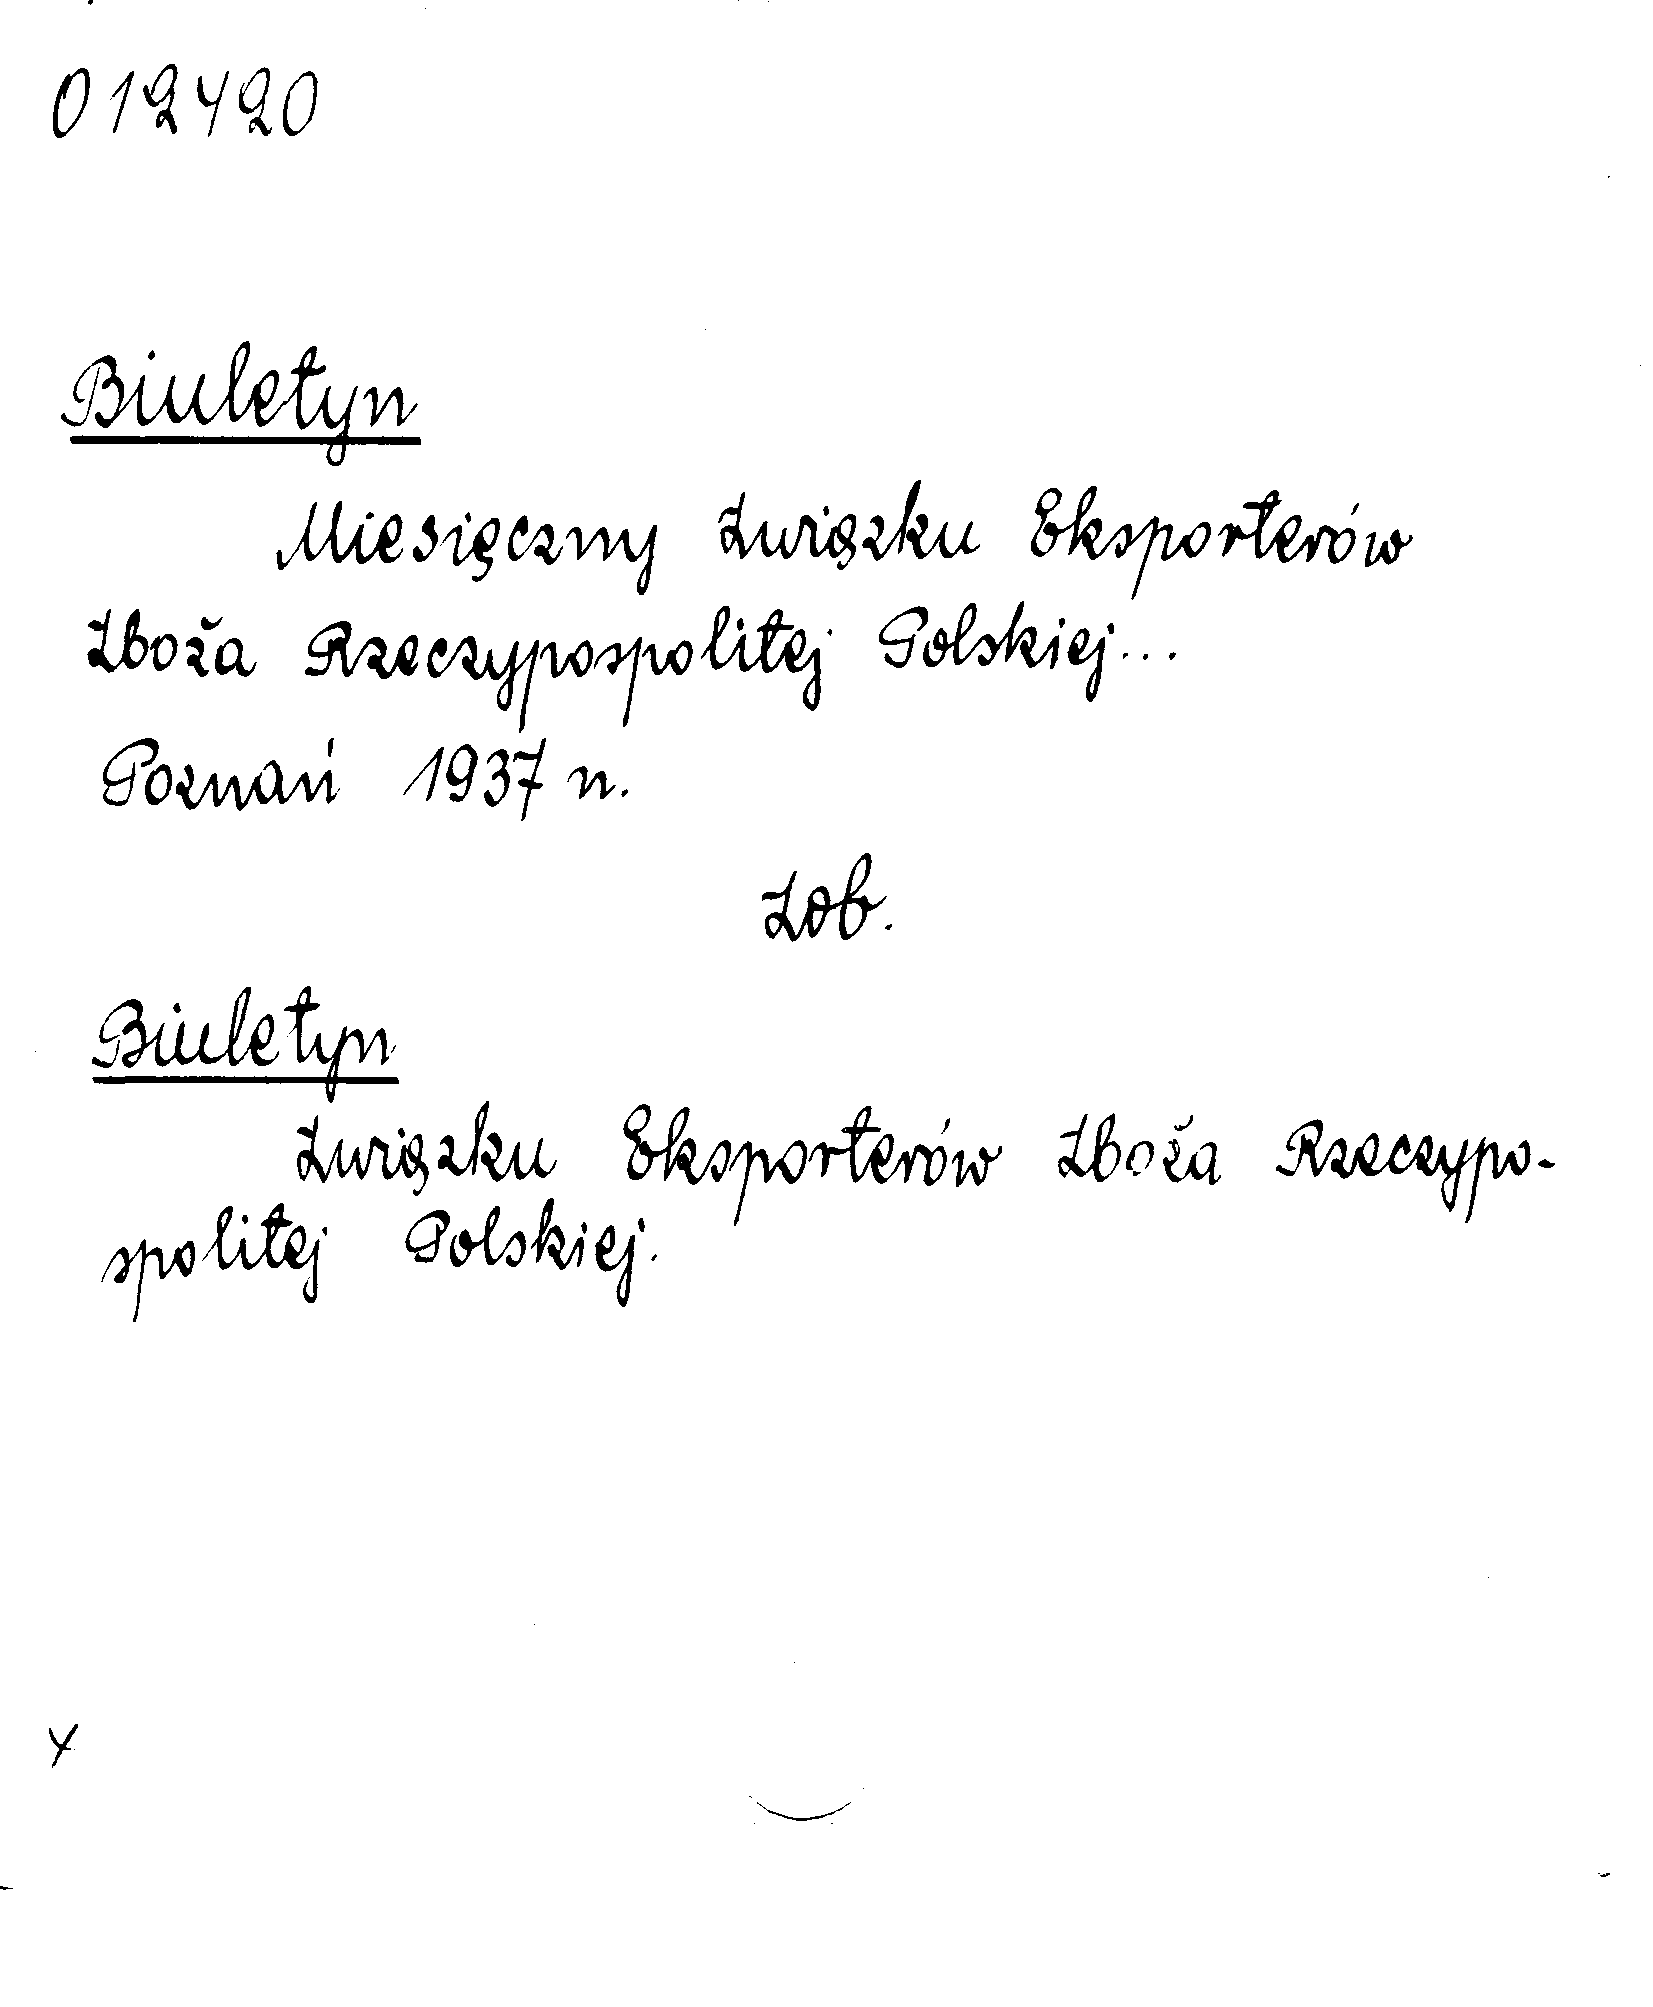 012420
Biuletyn
Miesięczny Związku Eksporterów
Zboża Rzeczypospolitej Polskiej...
Poznań 1937 n.
Zob.
Biuletyn
Związku Eksporterów Zboża Rzeczypo-
spolitej Polskiej.
x